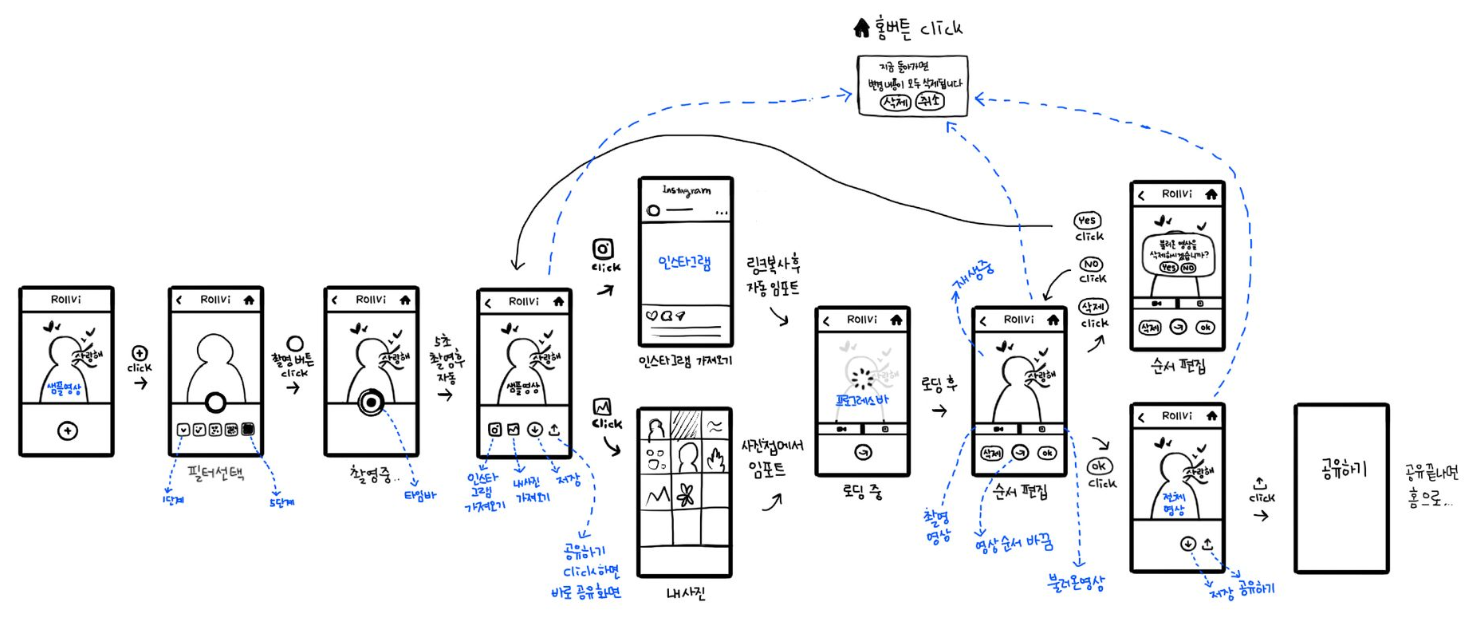 홈버튼 click
지금 돌아가면
변경내용이 모두 삭제됩니다
삭제 취소
Rollvi
사랑해
샘플영상
click
Rollvi
필터선택
1단계
5단계
촬영 버튼
click
Rollvi
사랑해
촬영중..
타임바
5초
촬영후
자동
Rollvi
사랑해
샘플영상
인스타
그램
가져오기
내사진
가져오기
저장
공유하기
click하면
바로 공유화면
click
Instagram
인스타그램
인스타그램 가져오기
click
내사진
링크복사 후
자동 임포트
사진첩에서
임포트
Rollvi
사랑해
프로그레스바
로딩 중
로딩 후
재생중
Rollvi
사랑해
삭제 ok
순서 편집
촬영
영상
영상순서 바꿈
불러온영상
Yes
click
NO
click
삭제
click
Rollvi
불러온 영상을
삭제하시겠습니까?
Yes NO
삭제 ok
순서 편집
ok
click
Rollvi
사랑해
전체
영상
저장 공유하기
click
공유하기
공유끝나면
홈으로...